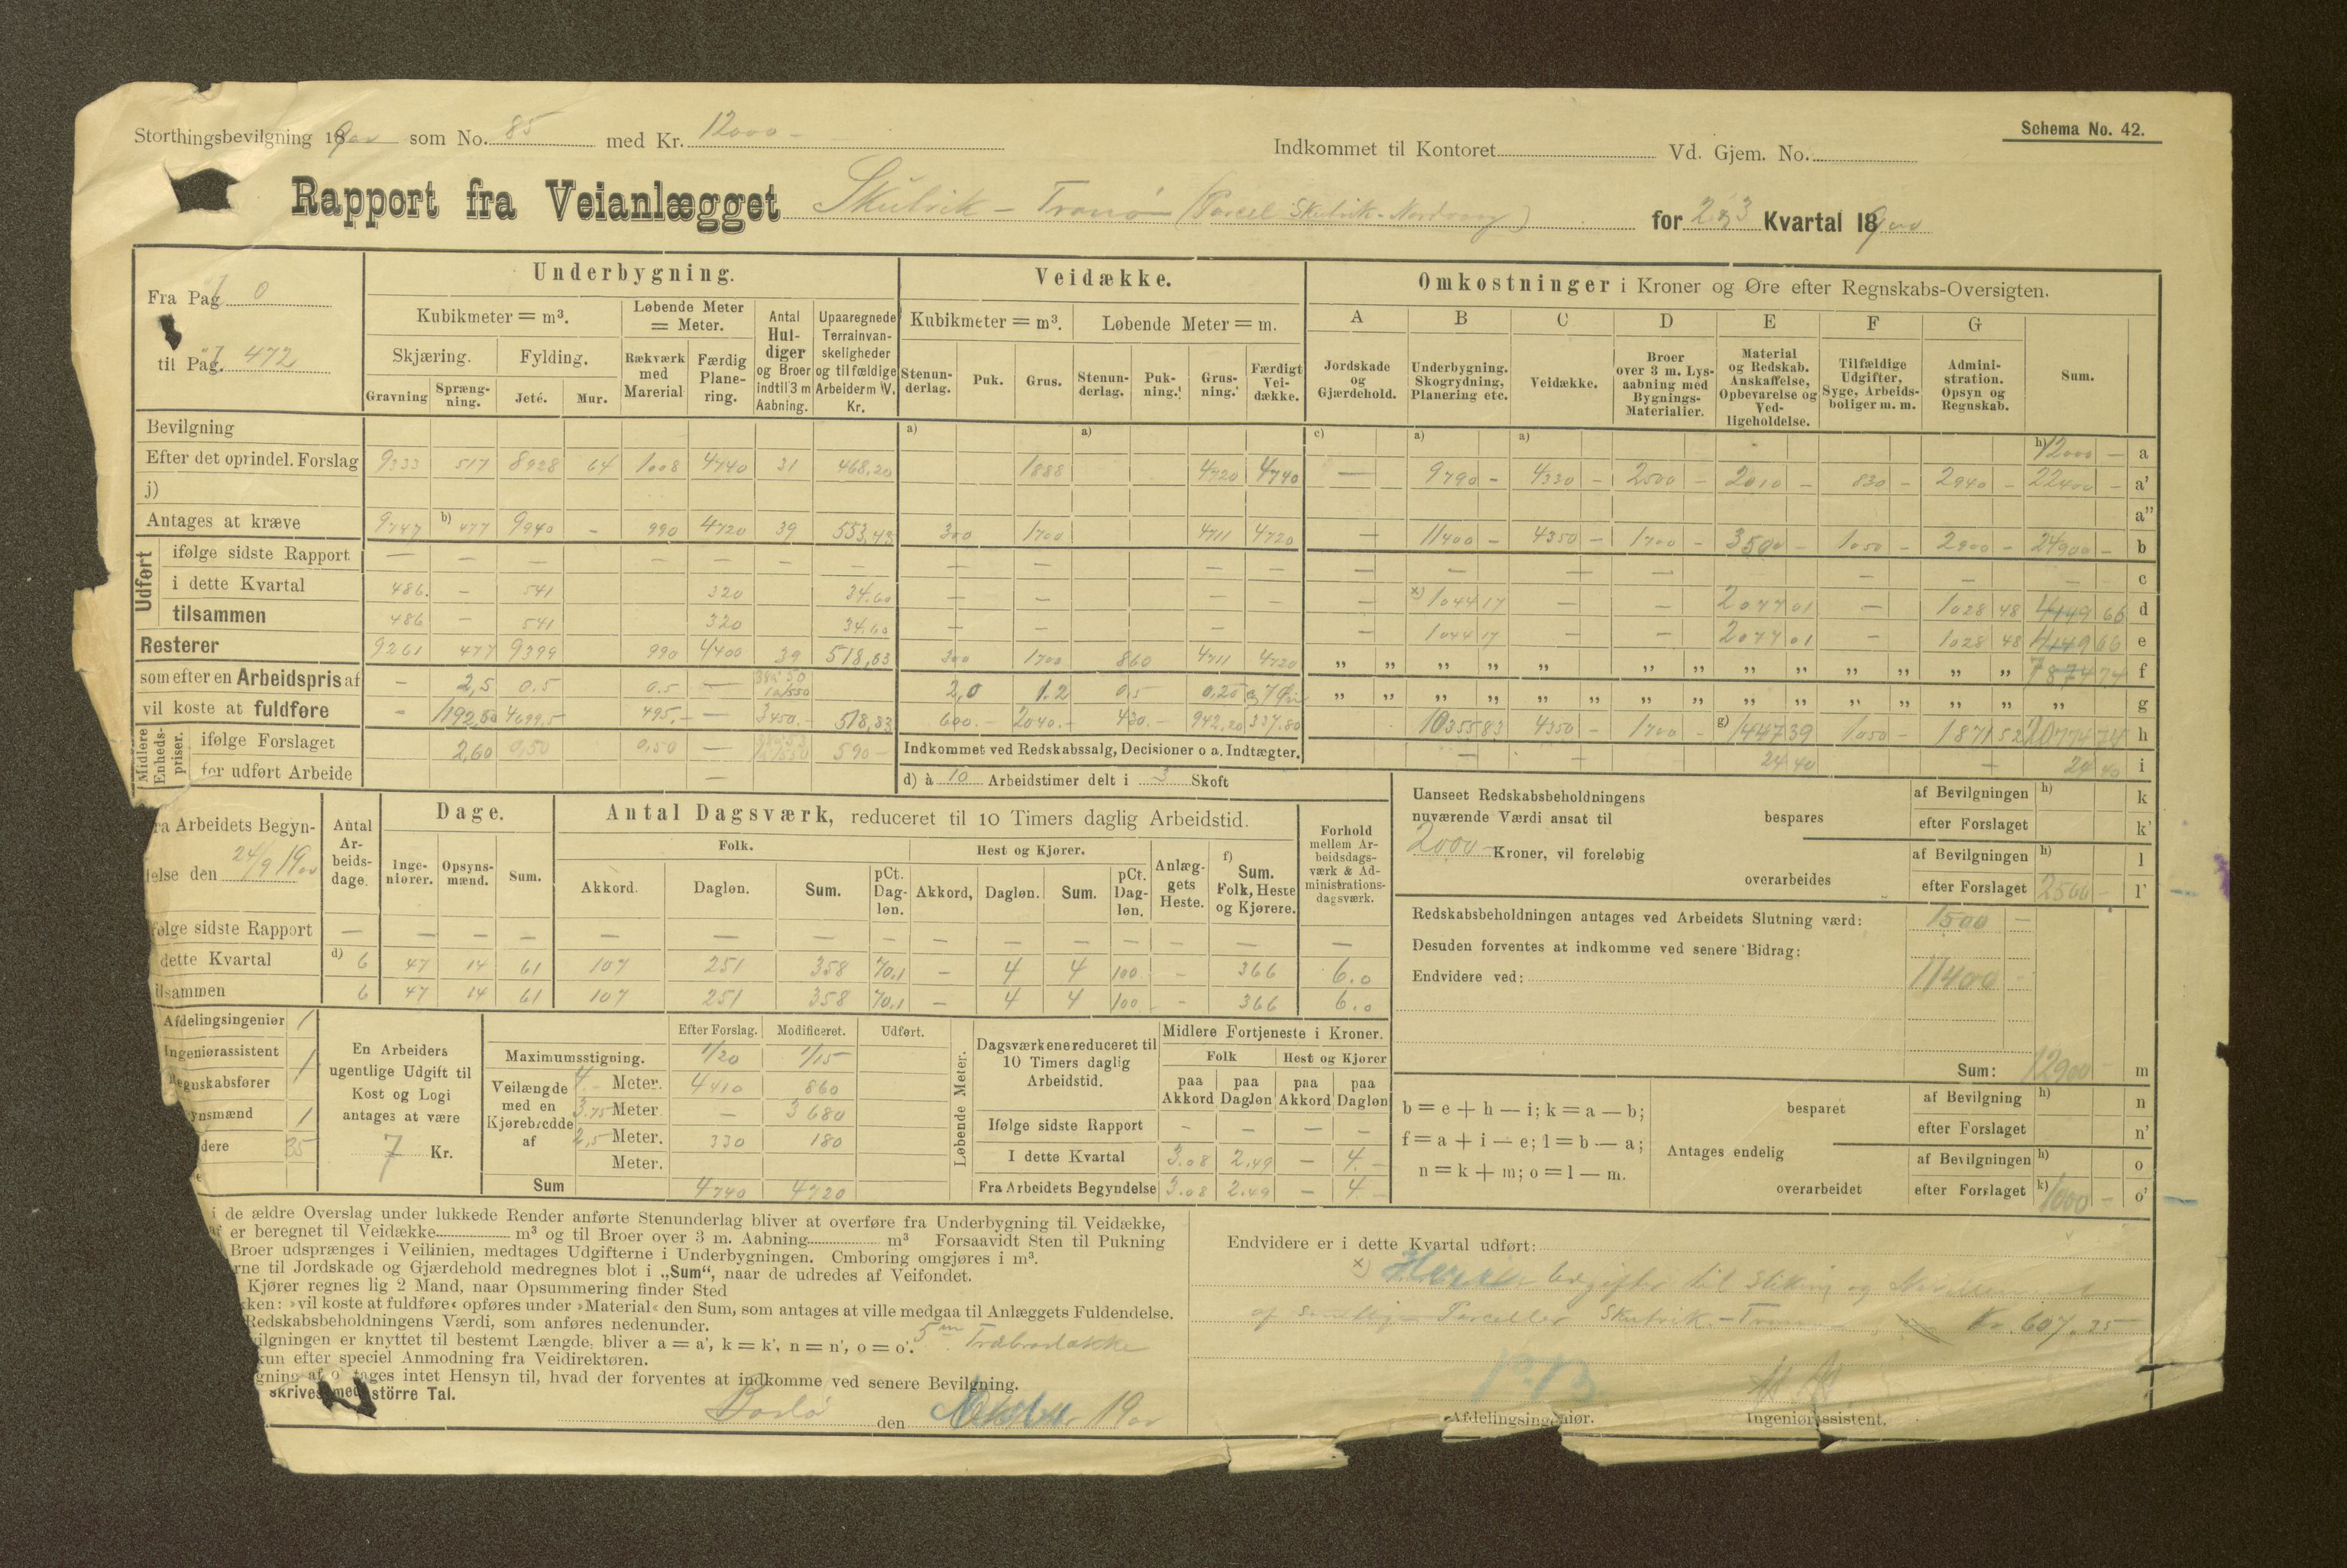 Schema No. 42.
Storthingsbevilgning 1900 som No. 85 med Kr. 12000 -
Indkommet til Kontoret Vd. Gjem. No.
Rapport fra Veianlægget Skutvik - Tranø (Parcel Skutvik - Nordvaag) for 2 og 3 Kvartal 1900
Fra Pæl 0
til Pæl 472
Underbygning.
Kubikmeter = m³.
Løbende Meter = Meter.
Skjæring. Fylding.
Gravning Sprængning. Jeté. Mur.
Rækværk med Marerial
Færdig Planering.
Antal Huldiger og Broer indtil 3 m Aabning.
Upaaregnede Terrainvanskeligheder og tilfældige Arbeider m. V. Kr.
Veidække.
Kubikmeter = m³. Løbende Meter = m.
Stenunderlag. Puk. Grus. Stenunderlag. Pukning. Grusning. Færdigt Veidække.
Omkostninger i Kroner og Øre efter Regnskabs-Oversigten.
A B C D E F G
Jordskade og Gjærdehold.
Underbygning. Skogrydning, Planering etc.
Veidække.
Broer over 3 m. Lysaabning med Bygnings-Materialier.
Material og Redskab. Anskaffelse, Opbevarelse og Vedligeholdelse.
Tilfældige Udgifter, Syge, Arbeidsboliger m. m.
Administration. Opsyn og Regnskab.
Sum.
Bevilgning a) a) c) a) a) h) 12000 - a
Efter det oprindel. Forslag 9333 517 8928 64 1008 4740 31 468,20 1888 4720 4740 — 9790 - 4330 - 2500 - 2010 - 830 - 2940 - 22400 - a'
j) a"
Antages at kræve 9747 b) 477 9940 - 990 4720 39 553,43 300 1700 4711 4720 — 11400 - 4350 - 1700 - 3500 - 1050 - 2900 - 24900 - b
Udført
ifølge sidste Rapport — — — — — — — — — — — — — — — — — — — — c
i dette Kvartal 486. - 541 320 34.60 — — — — — x) 1044 17 — — 2077 01 — 1028 48 4149 66 d
tilsammen 486 - 541 320 34.60 — — — — 1044 17 — — 2077 01 — 1028 48 4149 66 e
Resterer 9261 477 9399 990 4400 39 518,83 300 1700 860 4711 4720 „ „ „ „ „ „ „ „ „ „ „ „ „ 7874 74 f
som efter en Arbeidspris af - 2,5 0.5 0.5 — 2,0 1.2 0,5 0,20 „ „ „ „ „ „ „ „ „ „ „ „ „ „ g
vil koste at fuldføre - 1192,50 4699,5 495.- — 3450.- 518,83 600.- 2040.- 430.- 942,20 337,80 10355 83 4350 - 1700 - g) 1447 39 1050 - 1871 52 20774 74 h
Midlere Enhedspriser.
ifølge Forslaget 2,60 0,50 0,50 — 590 -
for udført Arbeide —
Indkommet ved Redskabssalg, Decisioner o a. Indtægter. — — 24 40 — 24 40 i
d) à 10 Arbeidstimer delt i 3 Skoft
ra Arbeidets Begyn-
else den 24/9 1900
Antal Arbeidsdage.
Dage.
Ingeniører. Opsynsmænd. Sum.
Antal Dagsværk, reduceret til 10 Timers daglig Arbeidstid.
Folk. Hest og Kjører.
Akkord. Dagløn. Sum. pCt. Dagløn. Akkord, Dagløn. Sum. pCt. Dagløn.
Anlæggets Heste.
f) Sum. Folk, Heste og Kjørere.
Forhold mellem Arbeidsdagsværk & Administrationsdagsværk.
følge sidste Rapport — — — — — — — — — — — — — — —
dette Kvartal d) 6 47 14 61 107 251 358 70.1 - 4 4 100 - 366 6.0
ilsammen 6 47 14 61 107 251 358 70.1 - 4 4 100 - 366 6.0
Uanseet Redskabsbeholdningens nuværende Værdi ansat til
2000 - Kroner, vil foreløbig
bespares
af Bevilgningen h) k
efter Forslaget k'
overarbeides
af Bevilgningen h) l
efter Forslaget 2500 - l'
Redskabsbeholdningen antages ved Arbeidets Slutning værd: 1500 —
Desuden forventes at indkomme ved senere Bidrag:
Endvidere ved: 11400 -
Sum: 12900 - m
Afdelingsingeniør 1
Ingeniørassistent 1
Regnskabsfører
ynsmænd 1
dere 35
En Arbeiders ugentlige Udgift til Kost og Logi antages at være
7 Kr.
Efter Forslag. Modificeret. Udført.
Maximumsstigning. 1/20 1/15
Veilængde med en Kjørebredde af
4.- Meter. 4410 860
3.75 Meter. — 3680
2,5 Meter. 330 180
Meter.
Sum 4740 4720
Løbende Meter.
Dagsværkene reduceret til 10 Timers daglig Arbeidstid.
Midlere Fortjeneste i Kroner.
Folk Hest og Kjører
paa Akkord paa Dagløn paa Akkord paa Dagløn
Ifølge sidste Rapport — — — —
I dette Kvartal 3.08 2.49 — 4.-
Fra Arbeidets Begyndelse 3.08 2.49 — 4.-
b = e + h — i; k = a — b;
f = a + i — e; l = b — a;
n = k + m; o = l — m.
Antages endelig
besparet
af Bevilgning h) n
efter Forslaget n'
overarbeidet
af Bevilgningen h) o
efter Forslaget k) 1000 - o'
i de ældre Overslag under lukkede Render anførte Stenunderlag bliver at overføre fra Underbygning til Veidække,
af er beregnet til Veidække m³ og til Broer over 3 m. Aabning m³ Forsaavidt Sten til Pukning
Broer udsprænges i Veilinien, medtages Udgifterne i Underbygningen. Omboring omgjøres i m³.
rne til Jordskade og Gjærdehold medregnes blot i „Sum“, naar de udredes af Veifondet.
Kjører regnes lig 2 Mand, naar Opsummering finder Sted
ken: »vil koste at fuldføre« opføres under »Material« den Sum, som antages at ville medgaa til Anlæggets Fuldendelse.
Redskabsbeholdningens Værdi, som anføres nedenunder.
vilgningen er knyttet til bestemt Længde, bliver a = a', k = k', n = n', o = o'.
kun efter speciel Anmodning fra Veidirektøren.
gning af o' tages intet Hensyn til, hvad der forventes at indkomme ved senere Bevilgning.
skrives med större Tal.
Bodø den Oktober 1900
Endvidere er i dette Kvartal udført:
x) Heraf Udgifter til Stikning og Nivellement
af samtlige Parceller Skutvik - Tranø Kr. 607.35
Afdelingsingeniør. Ingeniørassistent.